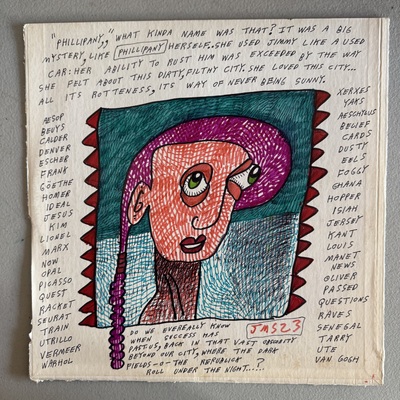 "PHILLIPANY," WHAT KINDA NAME WAS THAT? IT WAS A BIG
MYSTERY, LIKE PHILLIPANY HERSELF.. SHE USED JIMMY LIKE A USED
CAR: HER ABILITY TO RUST HIM WAS EXCEEDED BY THE WAY
SHE FELT ABOUT THIS DIRTY, FILTHY CITY. SHE LOVED THIS CITY...
ALL ITS ROTTENESS, ITS WAY OF NEVER BEING SUNNY.
AESOP
BEUYS
CALDER
DENVER
ESCHER
FRANK
GOETHE
HOMER
IDEAL
JESUS
KIM
LIONEL
MARX
NOW
OPAL
PICASSO
QUEST
RACKET
SEURAT
TRAIN
UTRILLO
VERMEER
WARHOL
XERXES
YAMS
AESCHYLUS
BELIEF
CARDS
DUSTY
EELS
FOGGY
GHANA
HOPPER
ISIAH
JERSEY
KANT
LOUIS
MANET
NEWS
OLIVER
PASSED
QUESTIONS
RAVES
SENEGAL
TARRY
UTE
VAN GOSH
JMS23
DO WE EVEREALLY KNOW
WHEN SECCESS HAS
PAST US, BACK IN THAT VAST OBSCURITY
BEYOND OUR CITY, WHERE THE DARK
FIELDS-O-THE REPUBLICK
ROLL UNDER THE NIGHT.....?